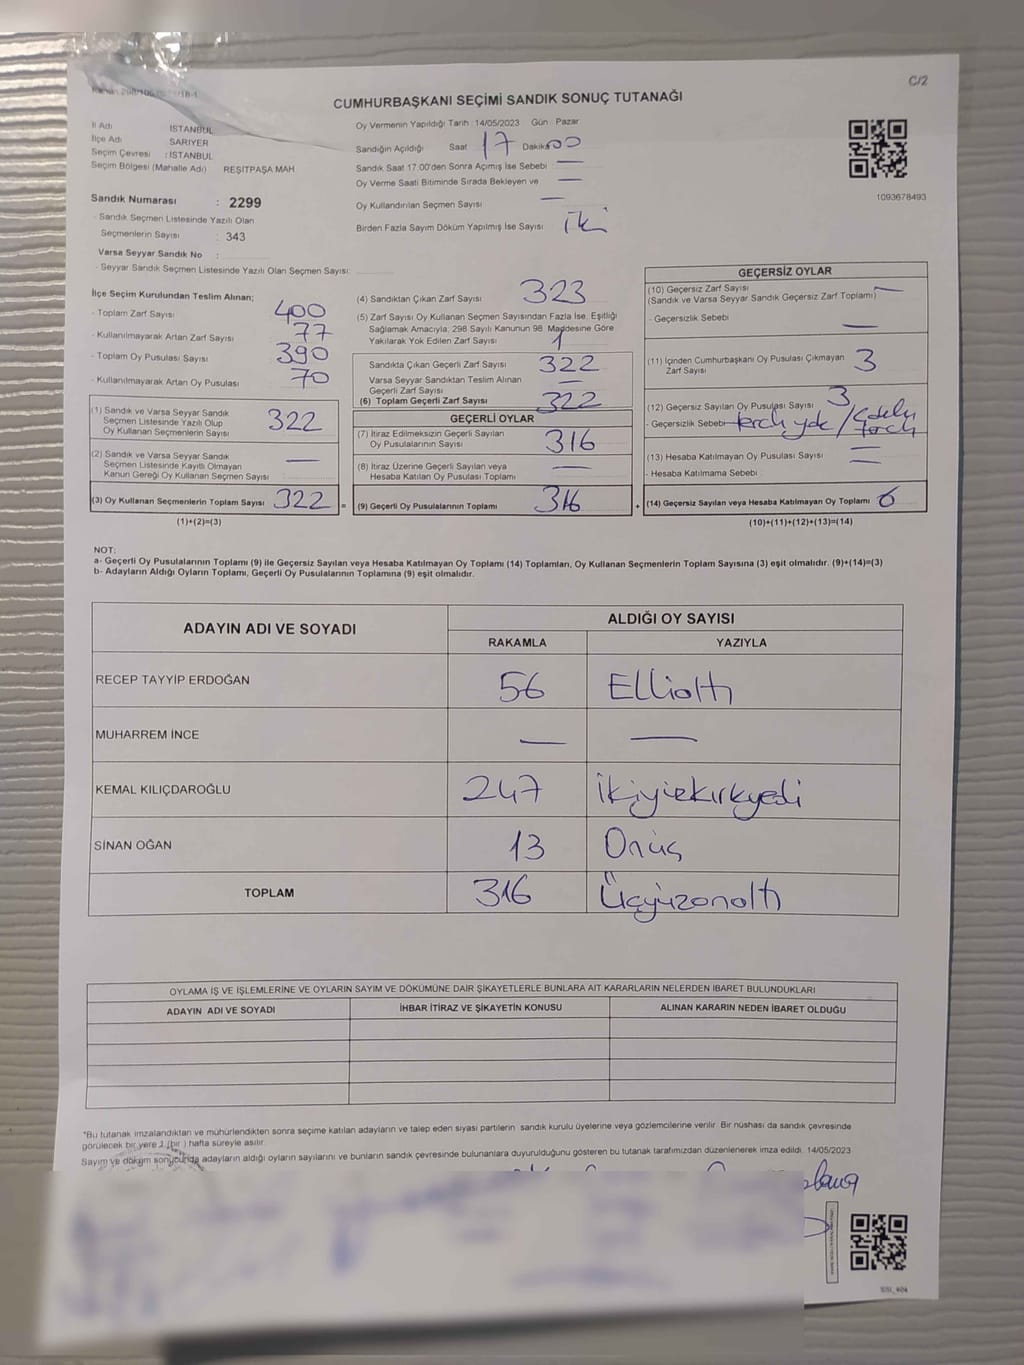 C/2
CUMHURBAŞKANI SEÇİMİ SANDIK SONUÇ TUTANAĞI
İl Adı İSTANBUL
İlçe Adı SARIYER
Seçim Çevresi : İSTANBUL
Seçim Bölgesi (Mahalle Adı) REŞİTPAŞA MAH
Sandık Numarası : 2299
- Sandık Seçmen Listesinde Yazılı Olan
Seçmenlerin Sayısı : 343
Varsa Seyyar Sandık No :
- Seyyar Sandık Seçmen Listesinde Yazılı Olan Seçmen Sayısı:
Oy Vermenin Yapıldığı Tarih : 14/05/2023 Gün : Pazar
Sandığın Açıldığı Saat 17 Dakika 00
Sandık Saat 17:00'den Sonra Açımış İse Sebebi —
Oy Verme Saati Bitiminde Sırada Bekleyen ve —
Oy Kullandırılan Seçmen Sayısı —
Birden Fazla Sayım Döküm Yapılmış İse Sayısı iki
1093678493
İlçe Seçim Kurulundan Teslim Alınan;
- Toplam Zarf Sayısı 400
- Kullanılmayarak Artan Zarf Sayısı 77
- Toplam Oy Pusulası Sayısı 390
- Kullanılmayarak Artan Oy Pusulası 70
(1) Sandık ve Varsa Seyyar Sandık
Seçmen Listesinde Yazılı Olup
Oy Kullanan Seçmenlerin Sayısı 322
(2) Sandık ve Varsa Seyyar Sandık
Seçmen Listesinde Kayıtlı Olmayan
Kanun Gereği Oy Kullanan Seçmen Sayısı —
(3) Oy Kullanan Seçmenlerin Toplam Sayısı 322 =
(1)+(2)=(3)
(4) Sandıktan Çıkan Zarf Sayısı 323
(5) Zarf Sayısı Oy Kullanan Seçmen Sayısından Fazla İse, Eşitliği
Sağlamak Amacıyla, 298 Sayılı Kanunun 98. Maddesine Göre
Yakılarak Yok Edilen Zarf Sayısı 1
Sandıkta Çıkan Geçerli Zarf Sayısı 322
Varsa Seyyar Sandıktan Teslim Alınan
Geçerli Zarf Sayısı —
(6) Toplam Geçerli Zarf Sayısı 322
GEÇERLİ OYLAR
(7) İtiraz Edilmeksizin Geçerli Sayılan
Oy Pusulalarının Sayısı 316
(8) İtiraz Üzerine Geçerli Sayılan veya
Hesaba Katılan Oy Pusulası Toplamı —
(9) Geçerli Oy Pusulalarının Toplamı 316 +
GEÇERSİZ OYLAR
(10) Geçersiz Zarf Sayısı
(Sandık ve Varsa Seyyar Sandık Geçersiz Zarf Toplamı) —
- Geçersizlik Sebebi —
(11) İçinden Cumhurbaşkanı Oy Pusulası Çıkmayan
Zarf Sayısı 3
(12) Geçersiz Sayılan Oy Pusulası Sayısı 3
- Geçersizlik Sebebi tercih yok /
(13) Hesaba Katılmayan Oy Pusulası Sayısı —
- Hesaba Katılmama Sebebi —
(14) Geçersiz Sayılan veya Hesaba Katılmayan Oy Toplamı 6
(10)+(11)+(12)+(13)=(14)
NOT:
a- Geçerli Oy Pusulalarının Toplamı (9) ile Geçersiz Sayılan veya Hesaba Katılmayan Oy Toplamı (14) Toplamları, Oy Kullanan Seçmenlerin Toplam Sayısına (3) eşit olmalıdır. (9)+(14)=(3)
b- Adayların Aldığı Oyların Toplamı, Geçerli Oy Pusulalarının Toplamına (9) eşit olmalıdır.
ADAYIN ADI VE SOYADI ALDIĞI OY SAYISI
RAKAMLA YAZIYLA
RECEP TAYYİP ERDOĞAN 56 Ellialtı
MUHARREM İNCE — —
KEMAL KILIÇDAROĞLU 247 İkiyüzkırkyedi
SİNAN OĞAN 13 Onüç
TOPLAM 316 Üçyüzonaltı
OYLAMA İŞ VE İŞLEMLERİNE VE OYLARIN SAYIM VE DÖKÜMÜNE DAİR ŞİKAYETLERLE BUNLARA AİT KARARLARIN NELERDEN İBARET BULUNDUKLARI
ADAYIN ADI VE SOYADI İHBAR İTİRAZ VE ŞİKAYETİN KONUSU ALINAN KARARIN NEDEN İBARET OLDUĞU
*Bu tutanak imzalandıktan ve mühürlendikten sonra seçime katılan adayların ve talep eden siyasi partilerin sandık kurulu üyelerine veya gözlemcilerine verilir. Bir nüshası da sandık çevresinde
görülecek bir yere 1 (bir) hafta süreyle asılır.
Sayım ve döküm sonucunda adayların aldığı oyların sayılarını ve bunların sandık çevresinde bulunanlara duyurulduğunu gösteren bu tutanak tarafımızdan düzenlenerek imza edildi. 14/05/2023